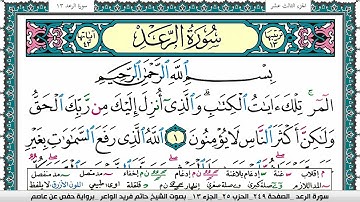 الجزء الثالث عشر
سورة الرعد ١٣
سُورَةُ الرَّعْدِ
بِسْمِ اللَّهِ الرَّحْمَٰنِ الرَّحِيمِ
الٓمٓرۚ تِلْكَ ءَايَٰتُ ٱلْكِتَٰبِۗ وَٱلَّذِىٓ أُنزِلَ إِلَيْكَ مِن رَّبِّكَ ٱلْحَقُّ
وَلَٰكِنَّ أَكْثَرَ ٱلنَّاسِ لَا يُؤْمِنُونَ ١ ٱللَّهُ ٱلَّذِى رَفَعَ ٱلسَّمَٰوَٰتِ بِغَيْرِ
سورة الرعد الصفحة ٢٤٩ الحزب ٢٥ الجزء ١٣ بصوت الشيخ حاتم فريد الواعر برواية حفص عن عاصم